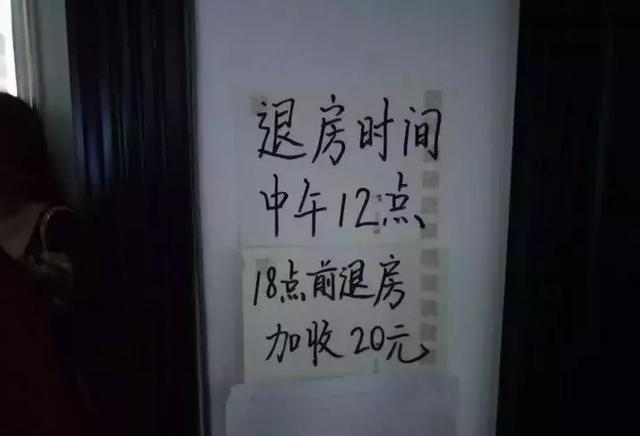 退房时间
中午12点
18点前退房
加收20元